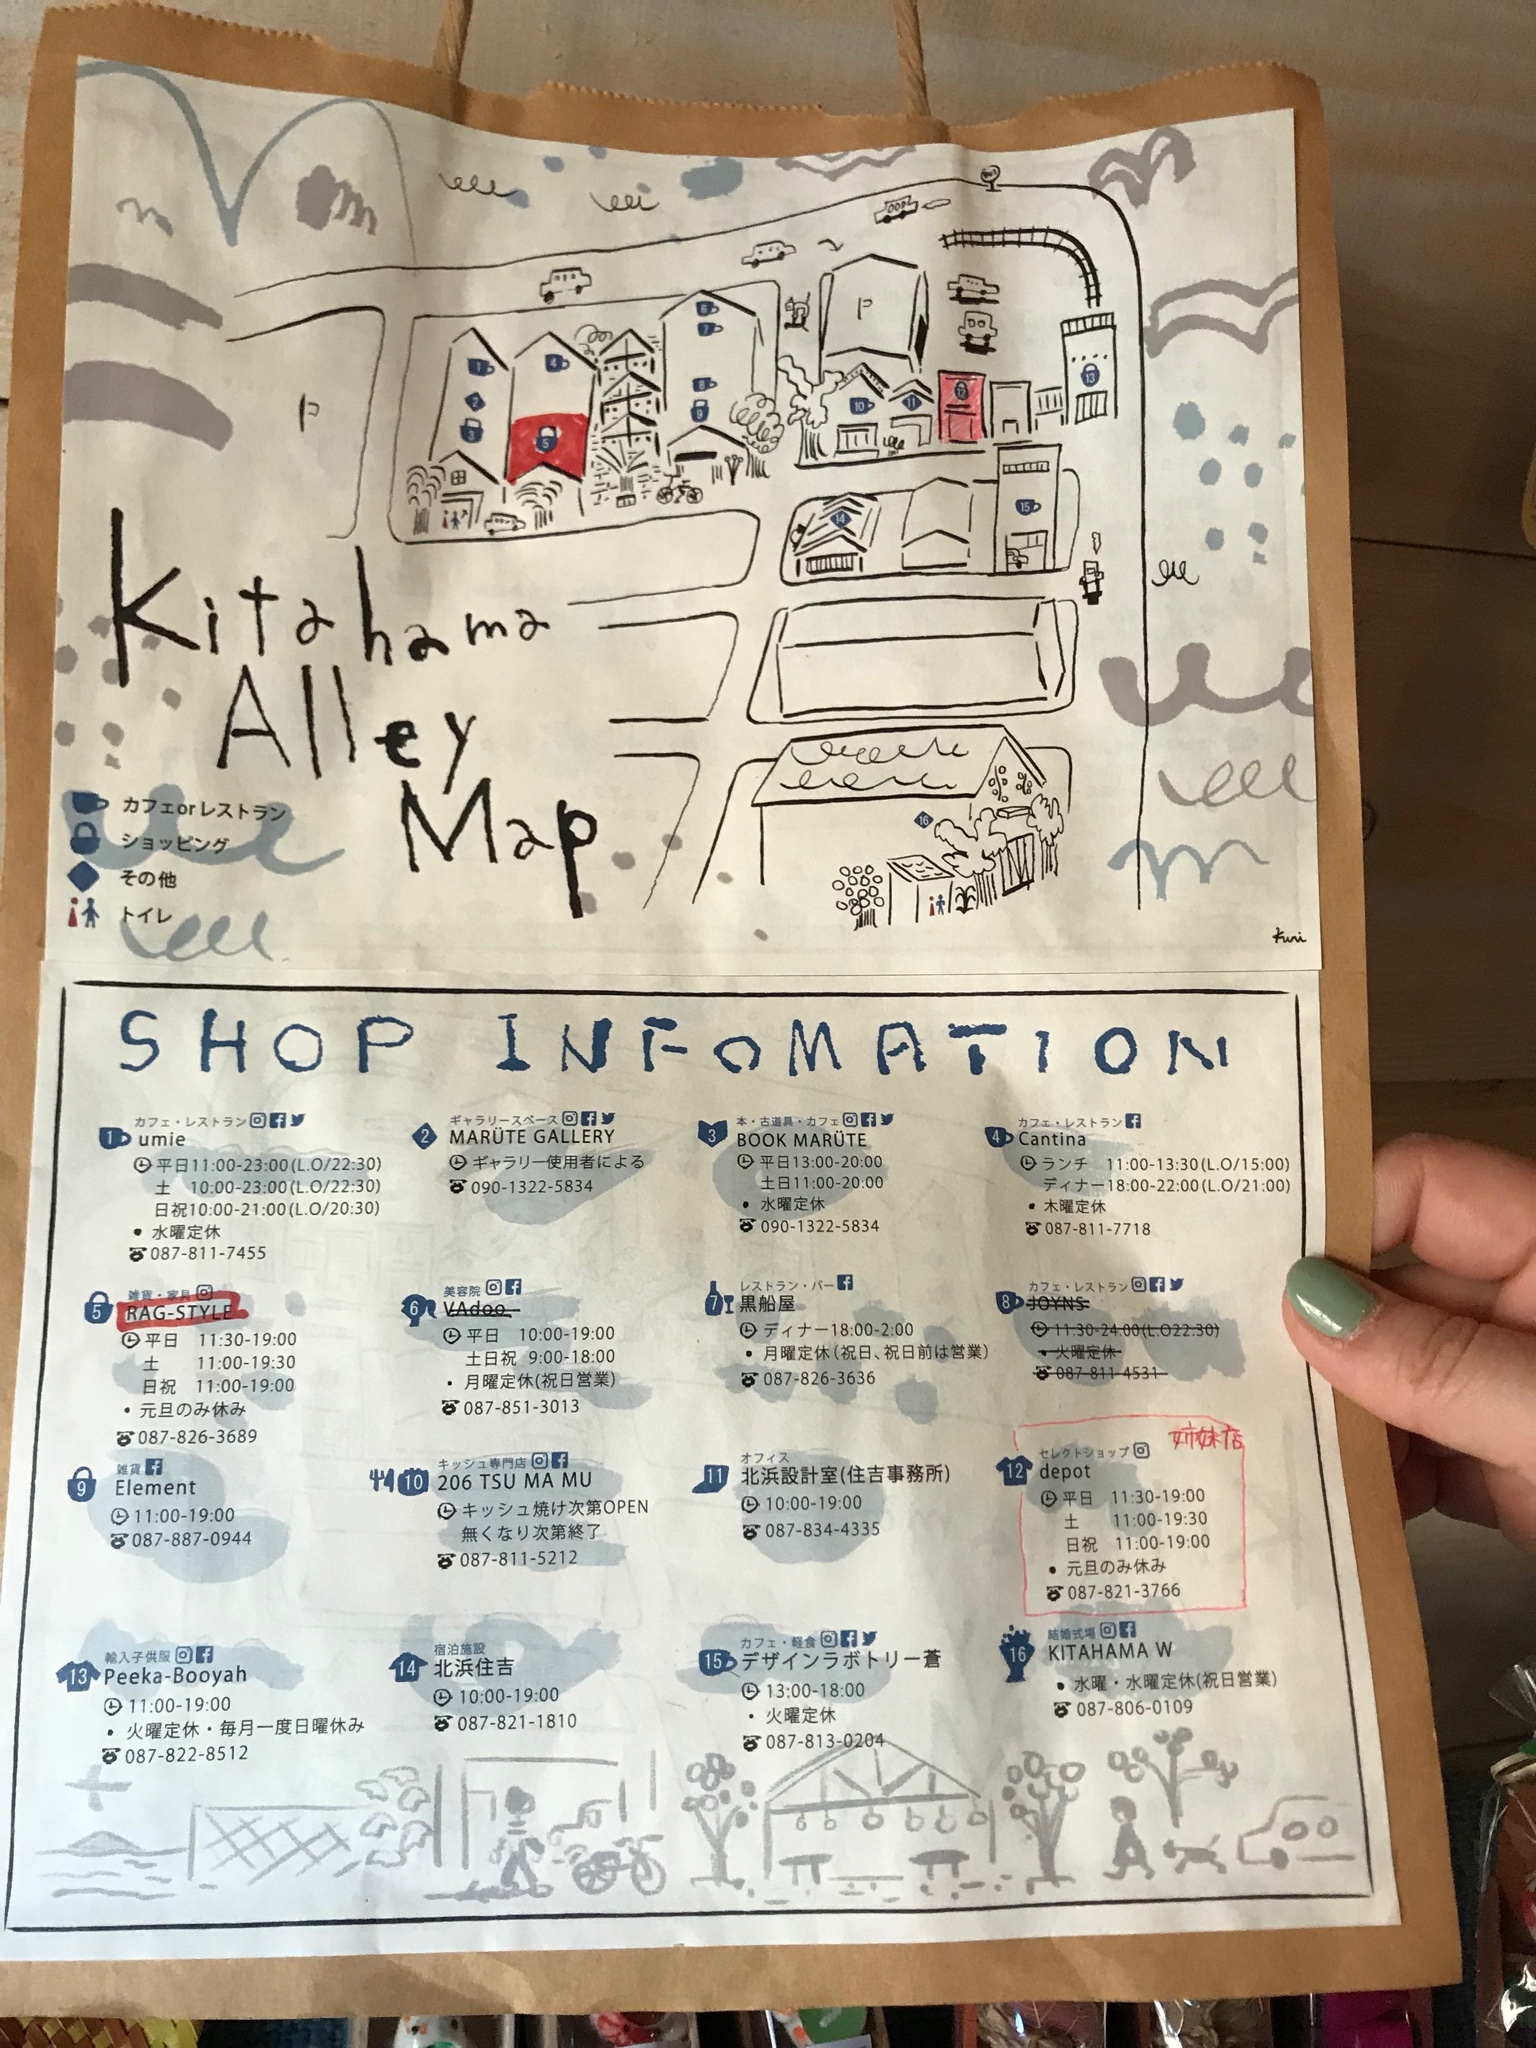 Kitahama
Alley
Map
カフェorレストラン
ショッピング
その他
トイレ
P
P
1
2
3
4
5
6
7
8
9
10
11
12
13
14
15
16
Kuri
SHOP INFOMATION
カフェ・レストラン
1 umie
平日11:00-23:00(L.O/22:30)
土 10:00-23:00(L.O/22:30)
日祝10:00-21:00(L.O/20:30)
• 水曜定休
087-811-7455
ギャラリースペース
2 MARÜTE GALLERY
ギャラリー使用者による
090-1322-5834
本・古道具・カフェ
3 BOOK MARÜTE
平日13:00-20:00
土日11:00-20:00
• 水曜定休
090-1322-5834
カフェ・レストラン
4 Cantina
ランチ 11:00-13:30(L.O/15:00)
ディナー18:00-22:00(L.O/21:00)
• 木曜定休
087-811-7718
雑貨・家具
5 RAG-STYLE
平日 11:30-19:00
土 11:00-19:30
日祝 11:00-19:00
• 元旦のみ休み
087-826-3689
美容院
6 VAdoo
平日 10:00-19:00
土日祝 9:00-18:00
• 月曜定休(祝日営業)
087-851-3013
レストラン・バー
7 黒船屋
ディナー18:00-2:00
• 月曜定休(祝日、祝日前は営業)
087-826-3636
カフェ・レストラン
8 JOYNS
11:30-24:00(L.O22:30)
• 火曜定休
087-811-4531
雑貨
9 Element
11:00-19:00
087-887-0944
キッシュ専門店
10 206 TSU MA MU
キッシュ焼け次第OPEN
無くなり次第終了
087-811-5212
オフィス
11 北浜設計室(住吉事務所)
10:00-19:00
087-834-4335
姉妹店
セレクトショップ
12 depot
平日 11:30-19:00
土 11:00-19:30
日祝 11:00-19:00
• 元旦のみ休み
087-821-3766
輸入子供服
13 Peeka-Booyah
11:00-19:00
• 火曜定休・毎月一度日曜休み
087-822-8512
宿泊施設
14 北浜住吉
10:00-19:00
087-821-1810
カフェ・軽食
15 デザインラボトリー蒼
13:00-18:00
• 火曜定休
087-813-0204
結婚式場
16 KITAHAMA W
• 水曜・水曜定休(祝日営業)
087-806-0109